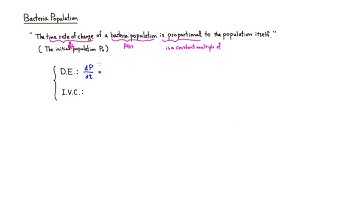 Bacteria Population
" The time rate of change of a bacteria population is proportional to the population itself. "
P(t) is a constant multiple of
( The initial population P₀ )
D.E.: dP/dt =
I.V.C.: